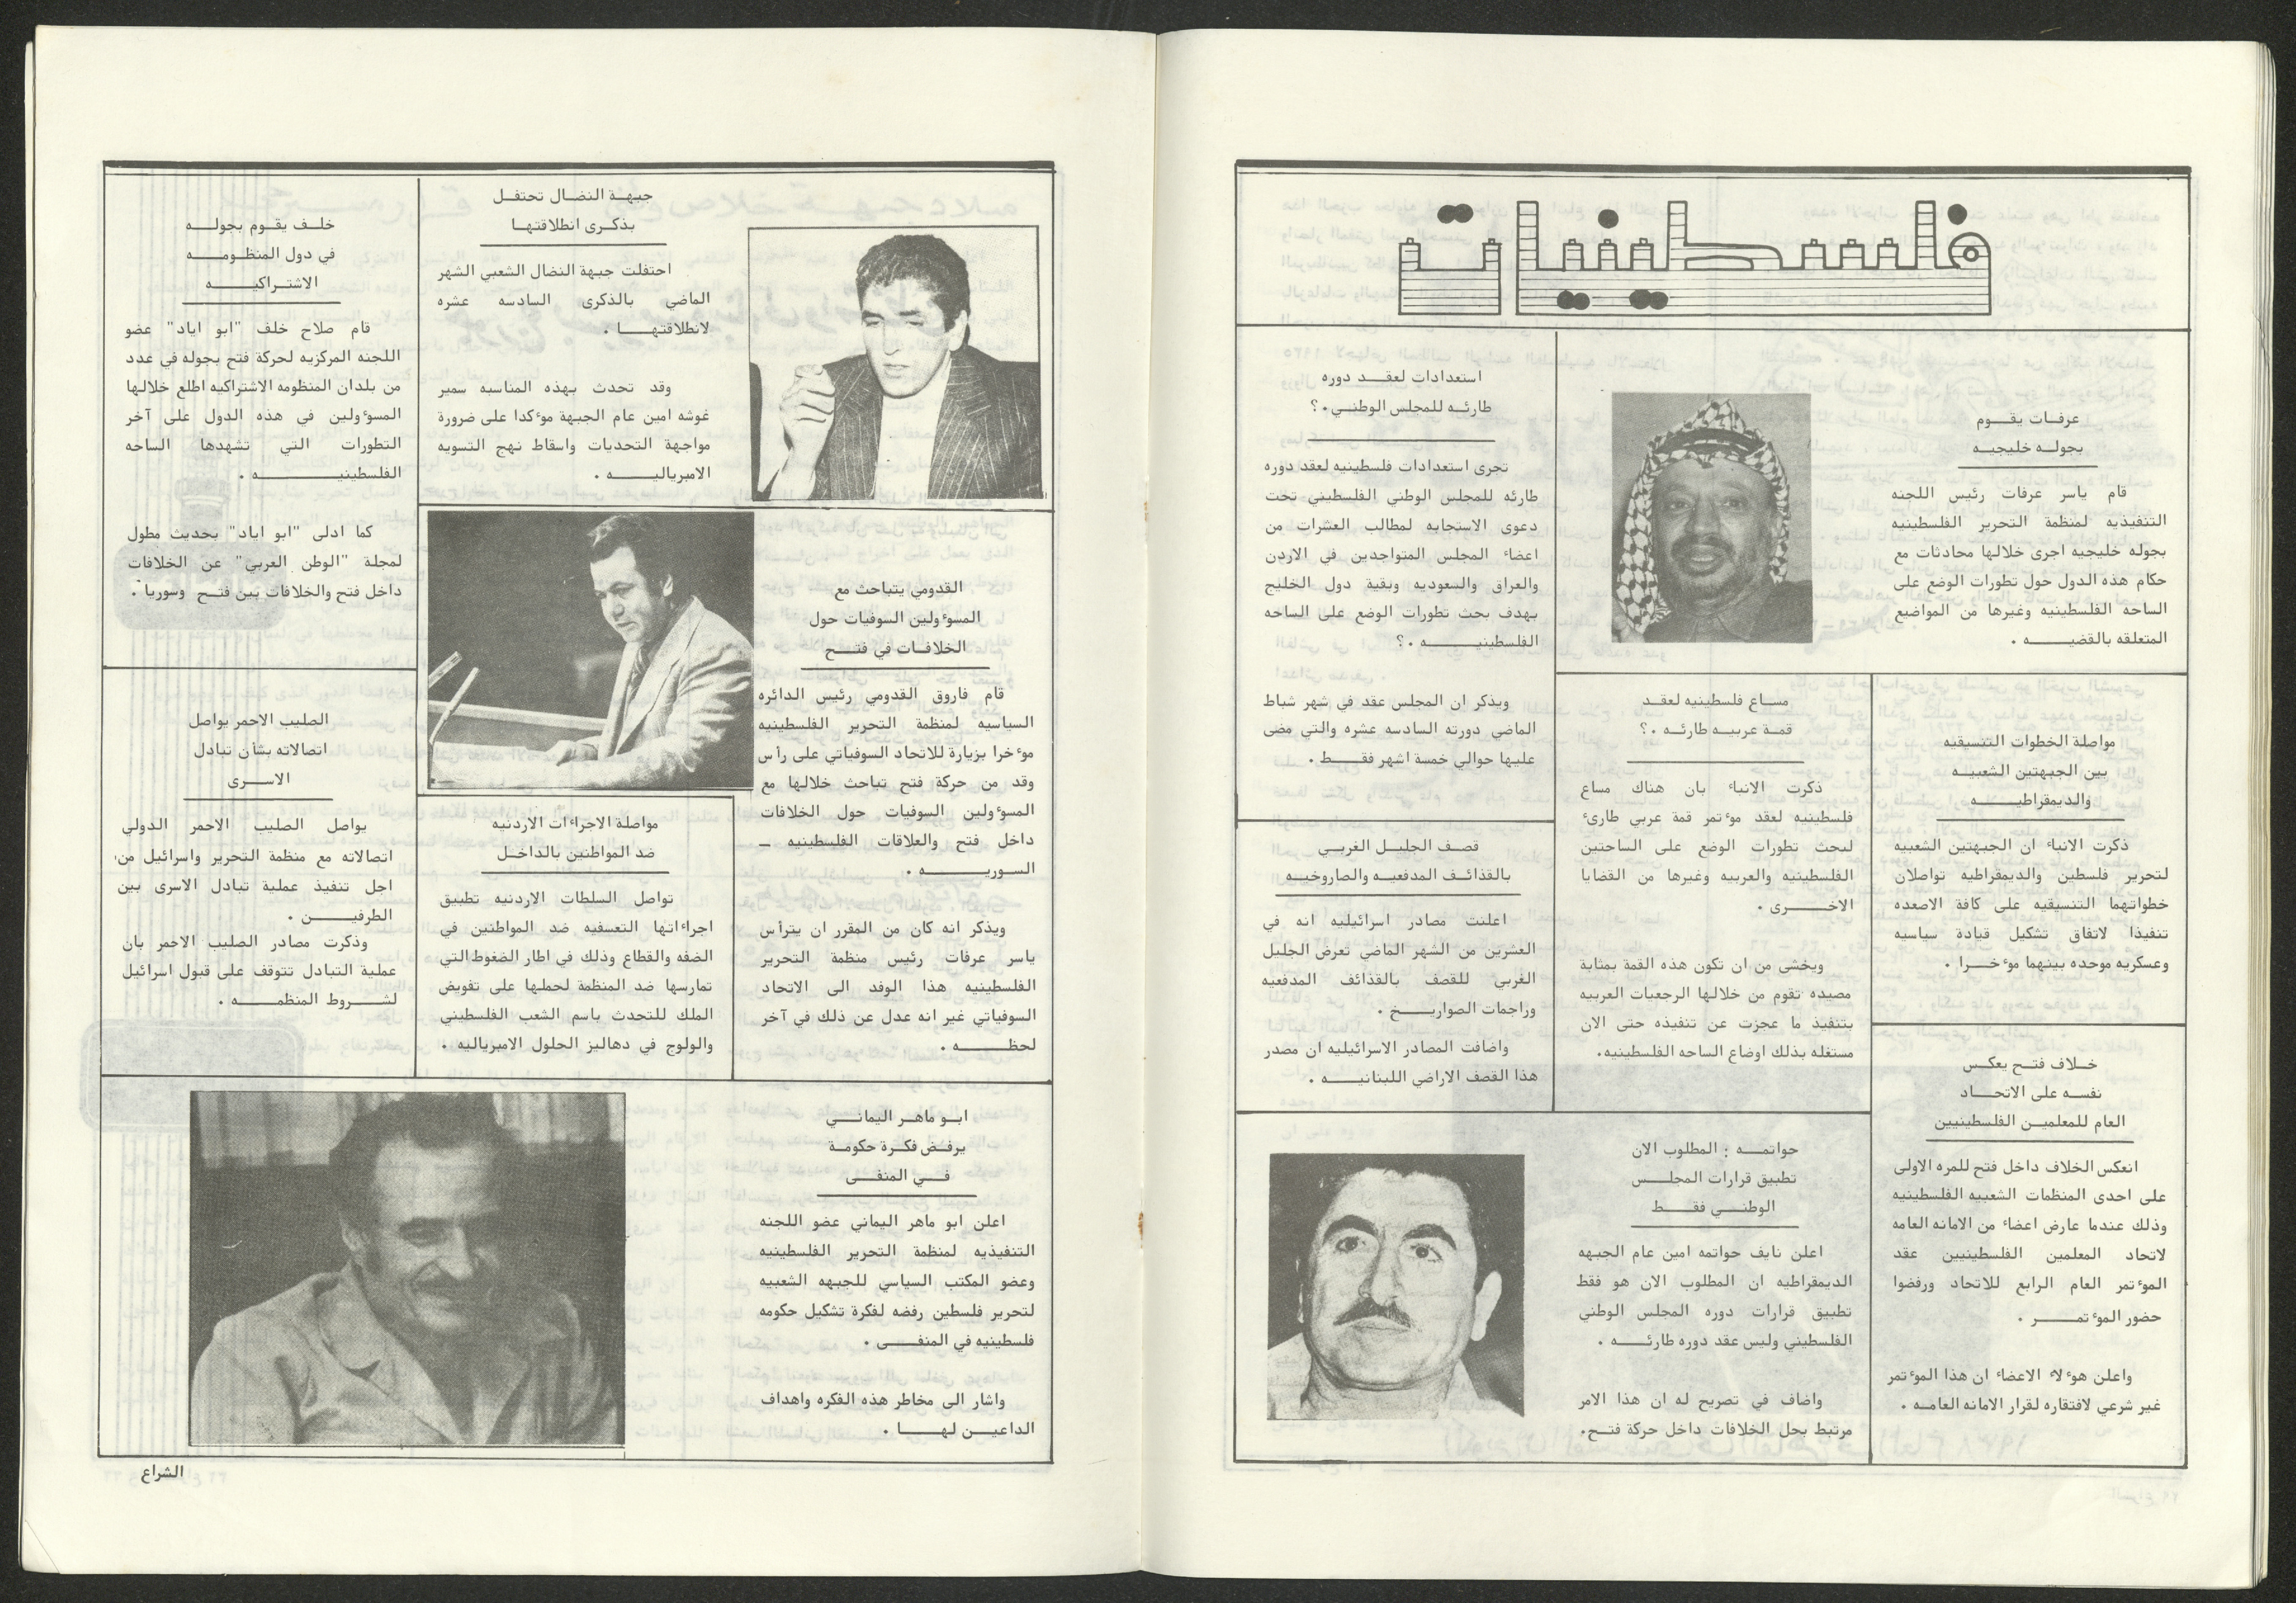 فلسطينيات
عرفـات يقـــوم
بجولـــه خليجيـه
قام ياسر عرفات رئيس اللجنه
التنفيذيه لمنظمة التحرير الفلسطينيه
بجوله خليجيه اجرى خلالها محادثات مع
حكام هذه الدول حول تطورات الوضع على
الساحه الفلسطينيه وغيرها من المواضيع
المتعلقه بالقضيـــــــه .
استعدادات لعقـــد دوره
طارئه للمجلس الوطنـــي . ؟
تجرى استعدادات فلسطينيه لعقد دوره
طارئه للمجلس الوطني الفلسطيني تحت
دعوى الاستجابه لمطالب العشرات من
اعضاء المجلس المتواجدين في الاردن
والعراق والسعوديه وبقية دول الخليج
بهدف بحث تطورات الوضع على الساحه
الفلسطينيـــــــه . ؟
ويذكر ان المجلس عقد في شهر شباط
الماضي دورته السادسه عشره والتي مضى
عليها حوالي خمسة اشهر فقـــط .
مواصلة الخطوات التنسيقيه
بين الجبهتين الشعبيـــه
والديمقراطيـــــــه
ذكرت الانباء ان الجبهتين الشعبيه
لتحرير فلسطين والديمقراطيه تواصلان
خطواتهما التنسيقيه على كافة الاصعده
تنفيذا لاتفاق تشكيل قيادة سياسيه
وعسكريه موحده بينهما موءخـــرا .
مســاع فلسطينيه لعقــد
قمـة عربيــه طارئــه . ؟
ذكرت الانباء بان هناك مساع
فلسطينيه لعقد موءتمر قمة عربي طارىء
لبحث تطورات الوضع على الساحتين
الفلسطينيه والعربيه وغيرها من القضايا
الاخـــــرى .
ويخشى من ان تكون هذه القمة بمثابة
مصيده تقوم من خلالها الرجعيات العربيه
بتنفيذ ما عجزت عن تنفيذه حتى الان
مستغله بذلك اوضاع الساحه الفلسطينيه.
قصـف الجليــل الغربــي
بالقذائـف المدفعيــه والصاروخيــه
اعلنت مصادر اسرائيليه انه في
العشرين من الشهر الماضي تعرض الجليل
الغربي للقصف بالقذائف المدفعيه
وراجمات الصواريـــــخ .
واضافت المصادر الاسرائيليه ان مصدر
هذا القصف الاراضي اللبنانيـــــه .
خــلاف فتــح يعكــس
نفســه على الاتحـــاد
العام للمعلميـن الفلسطينيين
انعكس الخلاف داخل فتح للمره الاولى
على احدى المنظمات الشعبيه الفلسطينيه
وذلك عندما عارض اعضاء من الامانه العامه
لاتحاد المعلمين الفلسطينيين عقد
الموءتمر العام الرابع للاتحاد ورفضوا
حضور الموءتمـــــر .
واعلن هوءلاء الاعضاء ان هذا الموءتمر
غير شرعي لافتقاره لقرار الامانه العامــه .
حواتمــــه : المطلوب الان
تطبيق قرارات المجلــــس
الوطنـــي فقـــط
اعلن نايف حواتمه امين عام الجبهه
الديمقراطيه ان المطلوب الان هو فقط
تطبيق قرارات دوره المجلس الوطني
الفلسطيني وليس عقد دوره طارئــــه .
واضاف في تصريح له ان هذا الامر
مرتبط بحل الخلافات داخل حركة فتــح.
جبهــة النضـال تحتفــل
بذكــرى انطلاقتهــا
احتفلت جبهة النضال الشعبي الشهر
الماضي بالذكرى السادسه عشره
لانطلاقتهـــــا .
وقد تحدث بهذه المناسبه سمير
غوشه امين عام الجبهة موءكدا على ضرورة
مواجهة التحديات واسقاط نهج التسويه
الامبرياليـــــه .
خلــف يقـوم بجولــــه
في دول المنظـومــــه
الاشتــراكيــــه
قام صلاح خلف "ابو اياد" عضو
اللجنه المركزيه لحركة فتح بجوله في عدد
من بلدان المنظومه الاشتراكيه اطلع خلالها
المسوءولين في هذه الدول على آخر
التطورات التي تشهدها الساحه
الفلسطينيـــــــــه .
كما ادلى "ابو اياد" بحديث مطول
لمجلة "الوطن العربي" عن الخلافات
داخل فتح والخلافات بين فتــح وسوريا .
القدومي يتباحث مع
المسوءولين السوفيات حول
الخلافـات في فتـــح
قام فاروق القدومي رئيس الدائره
السياسيه لمنظمة التحرير الفلسطينيه
موءخرا بزيارة للاتحاد السوفياتي على رأس
وفد من حركة فتح تباحث خلالها مع
المسوءولين السوفيات حول الخلافات
داخل فتح والعلاقات الفلسطينيه ــ
السـوريـــــــه .
ويذكر انه كان من المقرر ان يترأس
ياسر عرفات رئيس منظمة التحرير
الفلسطينيه هذا الوفد الى الاتحاد
السوفياتي غير انه عدل عن ذلك في آخر
لحظـــــــه .
مواصلة الاجراءات الاردنيه
ضد المواطنين بالداخــل
تواصل السلطات الاردنيه تطبيق
اجراءاتها التعسفيه ضد المواطنين في
الضفه والقطاع وذلك في اطار الضغوط التي
تمارسها ضد المنظمة لحملها على تفويض
الملك للتحدث باسم الشعب الفلسطيني
والولوج في دهاليز الحلول الامبرياليه .
الصليب الاحمر يواصل
اتصالاته بشأن تبادل
الاســـرى
يواصل الصليب الاحمر الدولي
اتصالاته مع منظمة التحرير واسرائيل من
اجل تنفيذ عملية تبادل الاسرى بين
الطرفيـــــن .
وذكرت مصادر الصليب الاحمر بان
عملية التبادل تتوقف على قبول اسرائيل
لشــــروط المنظمـــــه .
ابــو ماهــر اليمانـــي
يرفــض فكــرة حكومــة
فـــي المنفـــى
اعلن ابو ماهر اليماني عضو اللجنه
التنفيذيه لمنظمة التحرير الفلسطينيه
وعضو المكتب السياسي للجبهه الشعبيه
لتحرير فلسطين رفضه لفكرة تشكيل حكومه
فلسطينيه في المنفـــــى .
واشار الى مخاطر هذه الفكره واهداف
الداعيـــن لهـــــا .
الشراع